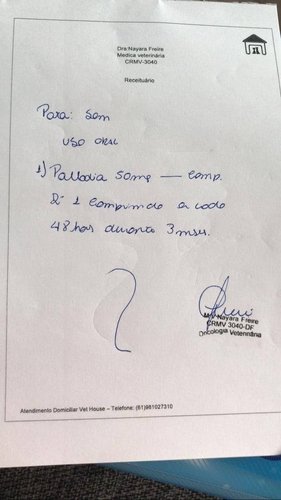 Dra Nayara Freire
Medica veterinária
CRMV-3040
Receituário
Para: Sam
USO ORAL
1) Palladia 50mg — comp.
1 comprimido a cada
48 horas durante 3 meses.
MV Nayara Freire
CRMV 3040-DF
Oncologia Veterinária
Atendimento Domiciliar Vet House – Telefone: (61)981027310